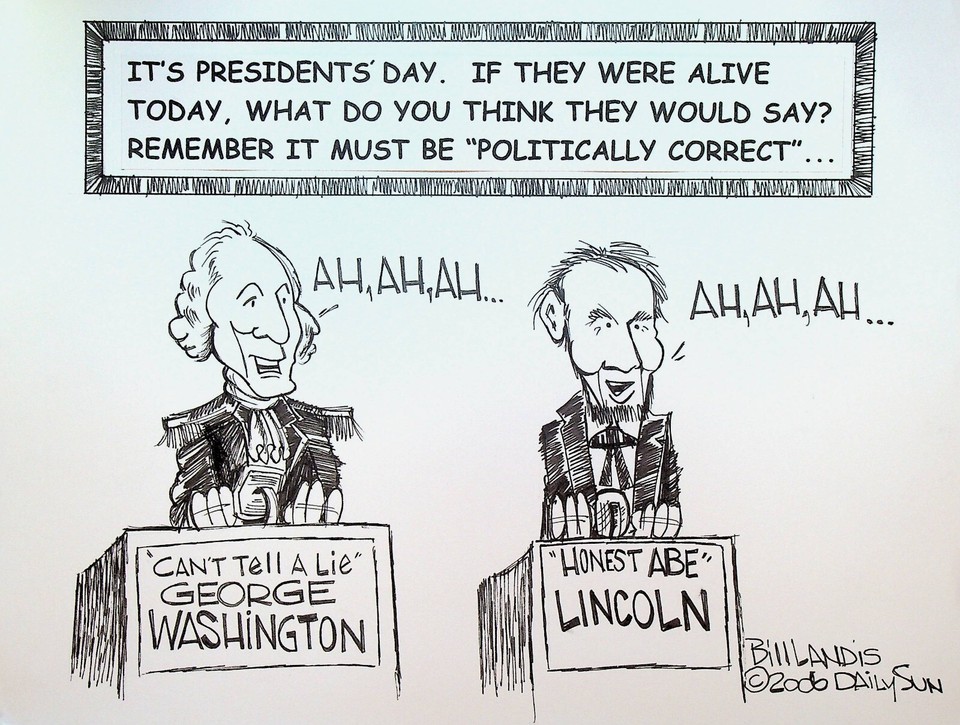 IT'S PRESIDENTS' DAY. IF THEY WERE ALIVE
TODAY, WHAT DO YOU THINK THEY WOULD SAY?
REMEMBER IT MUST BE "POLITICALLY CORRECT"...
AH, AH, AH...
AH, AH, AH...
"CAN'T TELL A LIE"
GEORGE
WASHINGTON
"HONEST ABE"
LINCOLN
Bill LANDIS
©2006 DAILY SUN